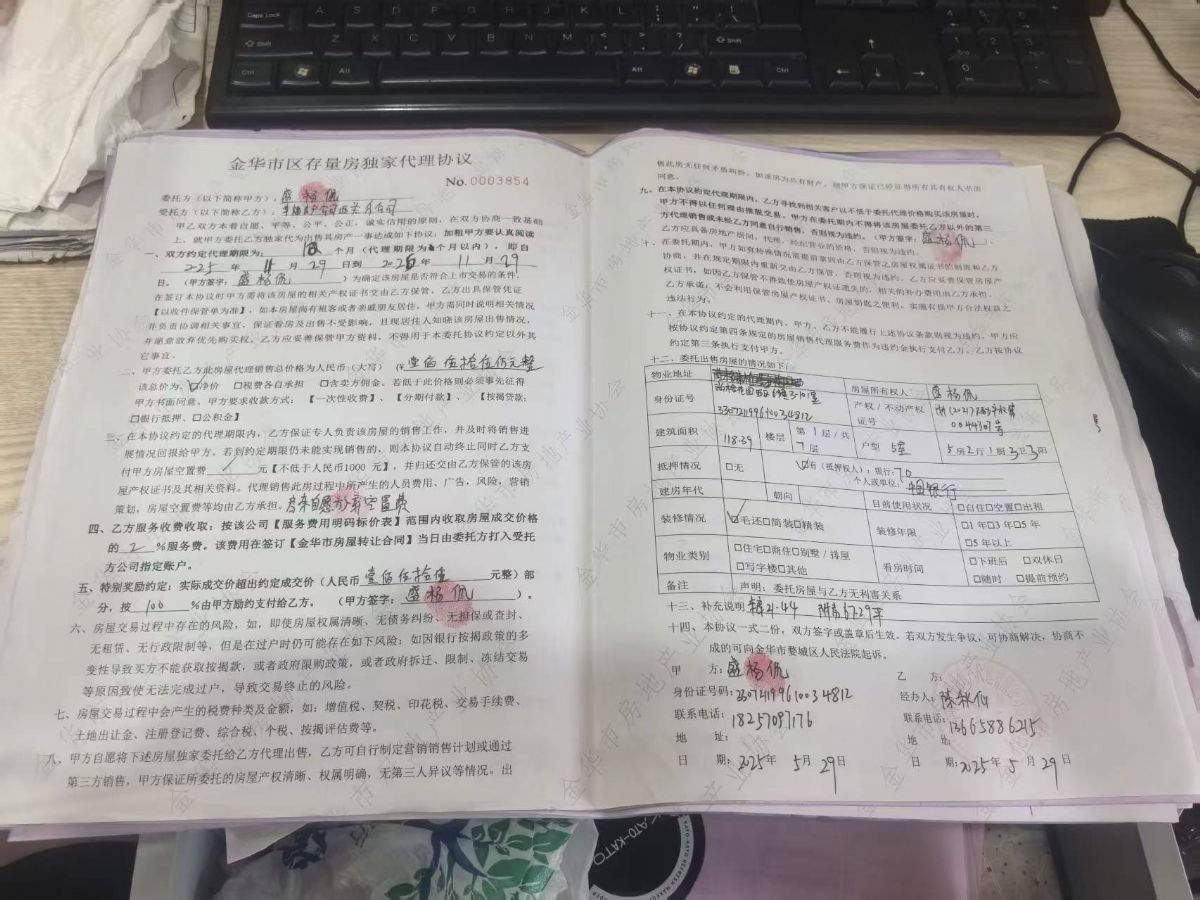 金华市区存量房独家代理协议
No.0003854
委托方（以下简称甲方）：盛杨佩
受托方（以下简称乙方）：
甲乙双方本着自愿、平等、公平、公正，诚实信用的原则，在双方协商一致基础
上，就甲方委托乙方独家代为出售其房产一事达成如下协议，加粗甲方要认真阅读
一、双方约定代理期限为： 个月（代理期限为 个月以内），即自
2025 年 月 29 日到 2025 年 11 月 29
日。（甲方签字：盛杨佩）为确定该房屋是否符合上市交易的条件，
在签订本协议时甲方需将该房屋的相关产权证书交由乙方保管，乙方出具保管凭证
【以收件保管单为准】，如本房屋尚有租客或者亲戚朋友居住，甲方需同时说明相关情况
并负责协调相关事宜，保证看房及出售不受影响，且现居住人知晓该房屋出售情况，
并愿意放弃优先购买权。乙方应妥善保管甲方资料，不得用于本委托协议约定以外其
它事宜。
二、甲方委托乙方此房屋代理销售总价格为人民币（大写） 壹佰伍拾伍仟元整
该总价为：☑净价 □税费各自承担 □含卖方佣金。若低于此价格则必须事先征得
甲方书面同意。甲方要求收款方式：【一次性收费】、【分期付款】、【按揭贷款：
□银行抵押、□公积金】
三、在本协议约定的代理期限内，乙方保证专人负责该房屋的销售工作，并及时将销售进
展情况回报给甲方。若到约定期限仍未能实现销售的，则本协议自动终止同时乙方支
付甲方房屋空置费 / 元【不低于人民币1000 元】，并归还交由乙方保管的该房
屋产权证书及其相关资料。代理销售此房过程中所产生的人员费用、广告，风险，营销
策划，房屋空置费等均由乙方承担。房东自愿放弃空置费
四、乙方服务收费收取：按该公司【服务费用明码标价表】范围内收取房屋成交价格
的 2 %服务费。该费用在签订【金华市房屋转让合同】当日由委托方打入受托
方公司指定账户。
五、特别奖励约定：实际成交价超出约定成交价（人民币 壹佰伍拾 元整）部
分，按 100 %由甲方励约支付给乙方。（甲方签字：盛杨佩）。
六、房屋交易过程中存在的风险，如，即使房屋权属清晰、无债务纠纷、无担保或查封、
无租赁、无行政限制等，但是在过户时仍可能存在如下风险：如因银行按揭政策的多
变性导致买方不能获取按揭款，或者政府限购政策，或者政府拆迁、限制、冻结交易
等原因致使无法完成过户，导致交易终止的风险。
七、房屋交易过程中会产生的税费种类及金额：如：增值税、契税、印花税、交易手续费、
土地出让金、注册登记费、综合税、个税、按揭评估费等。
八、甲方自愿将下述房屋独家委托给乙方代理出售，乙方可自行制定营销销售计划或通过
第三方销售，甲方保证所委托的房屋产权清晰、权属明确，无第三人异议等情况。出
售此房无任何矛盾纠纷，如该房为共有财产，则甲方保证已经征得所有共有权人书面
同意。
九、在本协议约定代理期限内，乙方寻找到相关客户以不低于委托代理价格购买该房屋时，
甲方不得以任何理由推脱交易，甲方在委托期内不得将该房屋委托乙方以外的第三
方代理销售或未经乙方同意自行销售，否则视为违约。（甲方签字：盛杨佩）；
乙方应具备房地产居间，代理，经纪营业的资格，否则视为违约。
十、在委托期内，甲方如有特殊情况需提前拿回由乙方保管之房屋权属证书的则须和乙方
协商，并在规定期限内重新交由乙方保管，否则视为违约。乙方应妥善保管房屋产
权证书，如因乙方保管不善致使房屋产权证遗失的，相关的补办费用由乙方承担。
乙方承诺：不会利用保管房屋产权证书、房屋钥匙之便利，实施有损甲方合法权益之
违法行为。
十一、在本协议约定的代理期内，甲方、乙方不能履行上述协议条款则视为违约，甲方应
按协议约定第四条规定的房屋销售代理服务费作为违约金执行支付乙方。乙方按协议
约定第三条执行支付甲方。
十二、委托出售房屋的情况如下：
物业地址 房屋所有权人： 盛杨佩
身份证号 330721199610034812 产权／不动产权证号 浙（2021） 0044307号
建筑面积 118.39 楼层 第 1 层/共 7 层 户型 5室 5房2厅1厨3卫3阳
抵押情况 □无 ☑有（抵押权人）：银行：70 个人或单位：
建房年代 朝向 目前使用状况 □自住□空置□出租
装修情况 ☑毛还□简装□精装 装修年限 □1年□3年□5年 □5年以上
物业类别 □住宅□商住□别墅／排屋 □写字楼□其他 看房时间 □下班后 □双休日 □随时 □提前预约
备注 声明：委托房屋与乙方无利害关系
十三、补充说明
十四、本协议一式二份，双方签字或盖章后生效。若双方发生争议，可协商解决，协商不
成的可向金华市婺城区人民法院起诉。
甲 方：盛杨佩
身份证号码：330721199610034812
联系电话：18257097176
地 址：
日 期：2025年 5月 29日
乙 方：
经办人：陈秋仙
联系电话：13665886215
地 址：
日 期：2025年 5月 29日